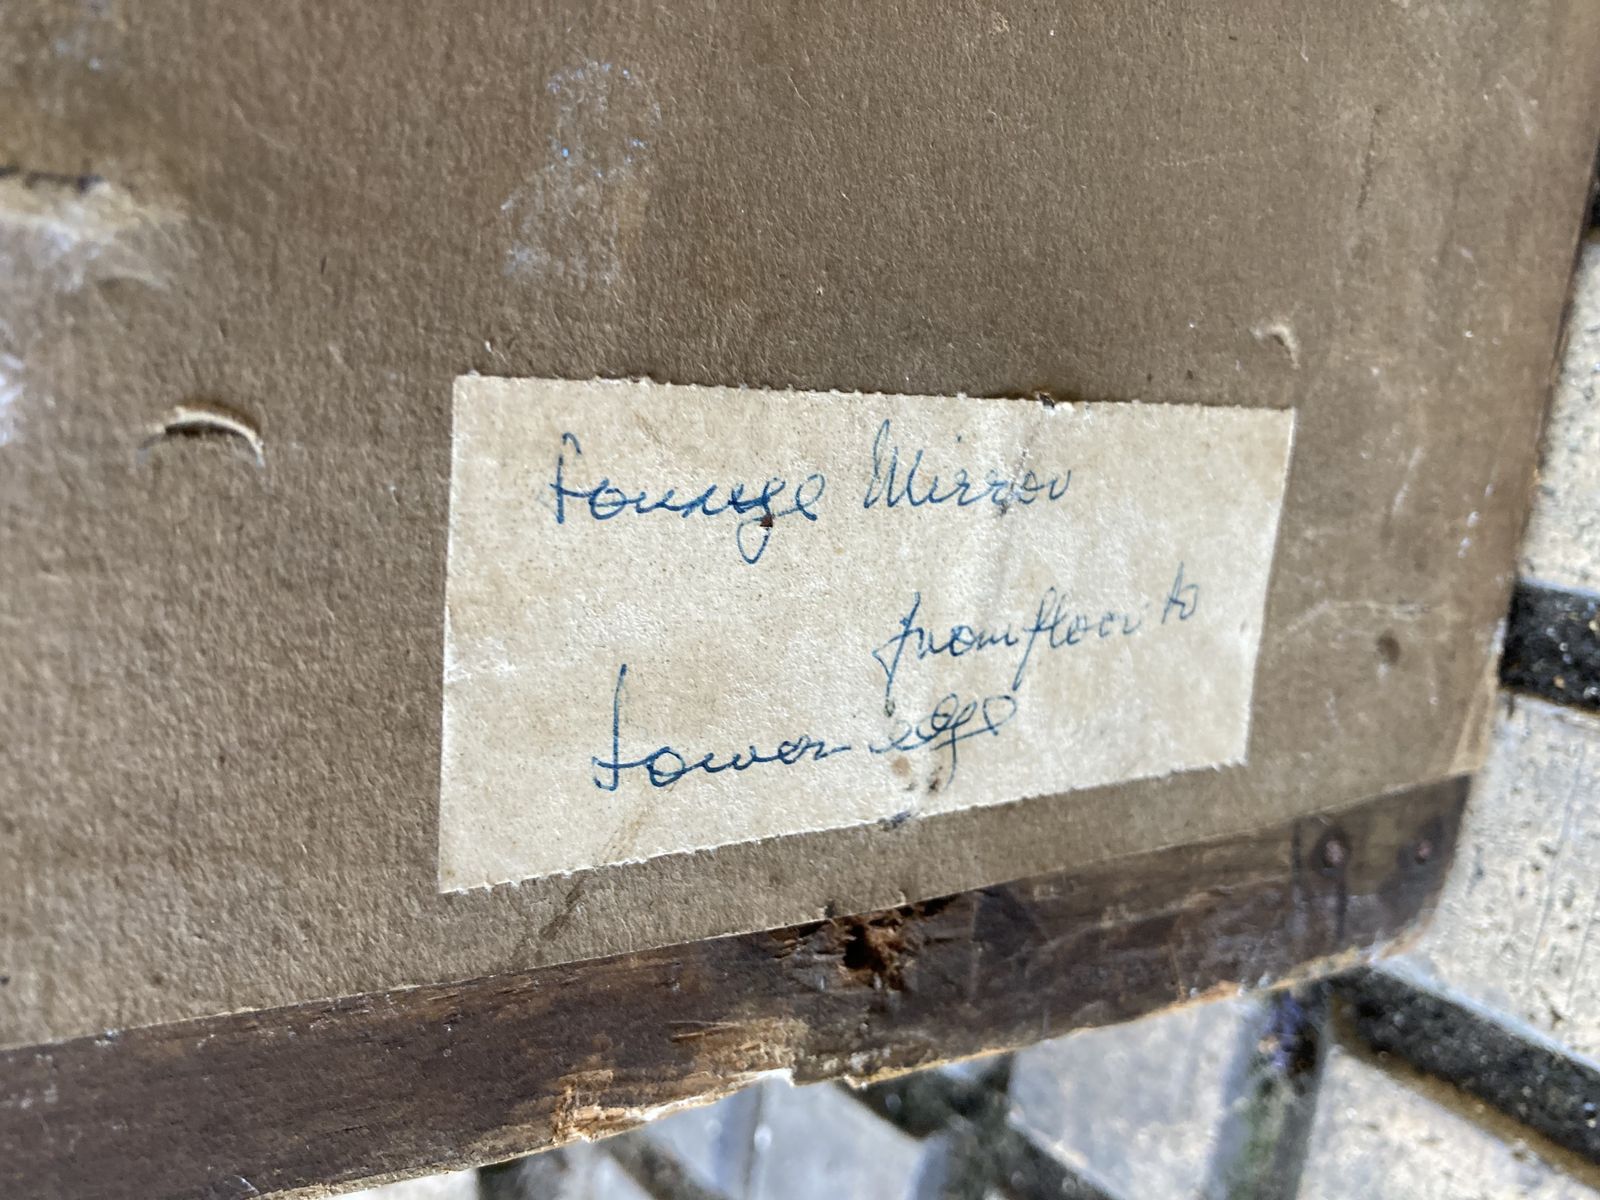 Lounge Mirror
from floor to
Lower edge